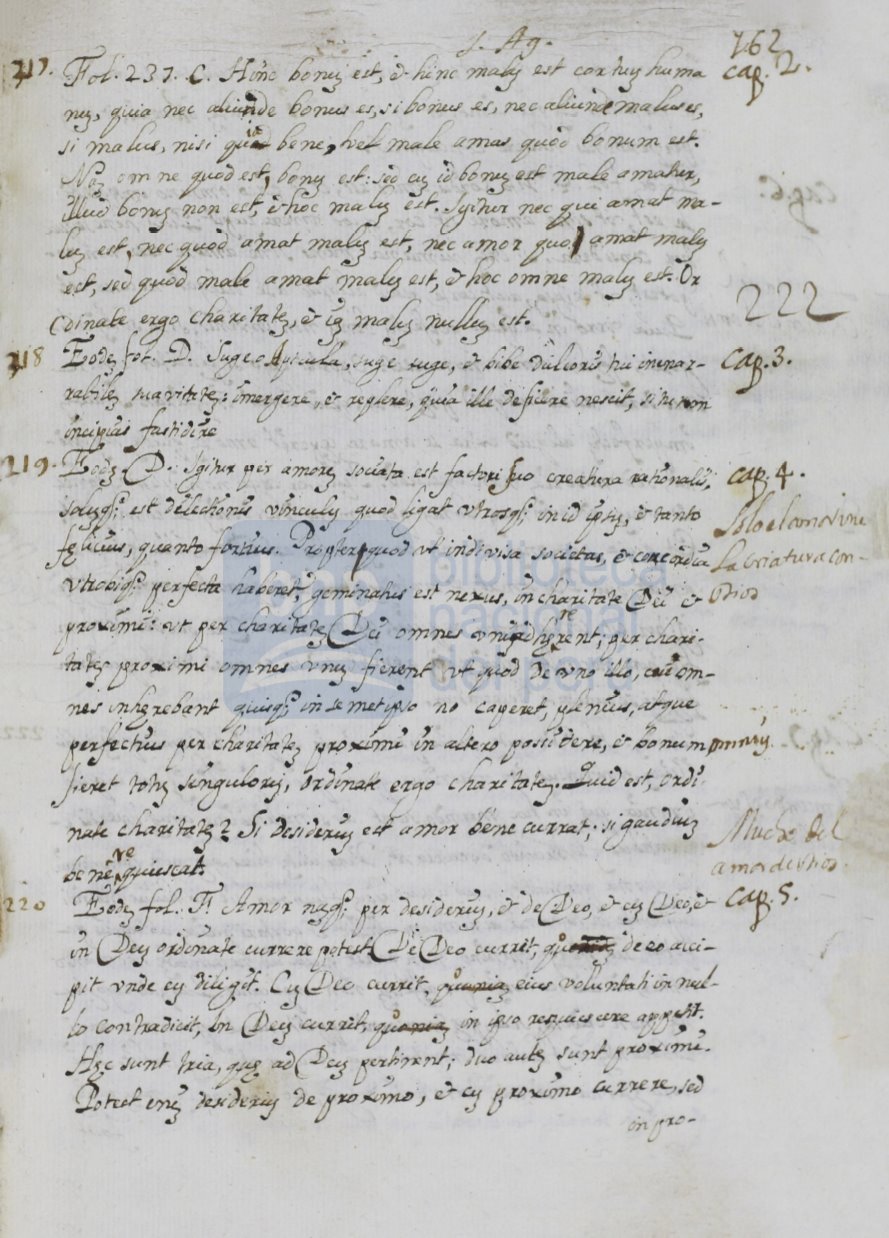 S. Ag.
162
217. Fol. 237. C. Hinc bonus est, et hinc malus est cor tuus huma cap. 2.
nus, quia nec aliunde bonus es, si bonus es, nec aliunde malus es,
si malus, nisi quia bene, vel male amas quod bonum est.
Nam omne quod est, bonus est: sed cum id bonus est male amatur,
illud bonus non est, et hoc malus est. Igitur nec qui amat ma-
lus est, nec quod amat malus est, nec amor quo amat malus
est, sed quod male amat malus est, et hoc omne malus est. Or
222
dinate ergo charitatem, et iam malus nullus est.
218 Eodem fol. D. Suge o Apicula, suge suge, et bibe dulcoris tui inenar- cap. 3.
rabilem suavitatem: immergere, et replere, quia ille deficere nescit, si tu non
incipias fastidire
219. Eodem D. Igitur per amorem sociata est factori suo creatura rationalis, cap. 4.
solusq; est dilectionis vinculum quod ligat utrosq; in id ipsum, et tanto
Solo el amor une
felicius, quanto fortius. Propter quod ut indivisa societas, et concordia
la criatura con
utrobiq; perfecta haberet, geminatus est nexus, in charitate Dei et
Dios
proximi: ut per charitatem Dei omnes uni inhererent; per chari-
tatem proximi omnes unum fierent ut quod de uno illo, cui om-
nes inherebant quisq; in semetipso no caperet, plenius, atque
perfectius per charitatem proximi in altero possideret, et bonum omnium
fieret totum singulorum, ordinate ergo charitatem. Quid est, ordi-
nate charitatem? Si desiderium est amor bene currat; si gaudium
Mucho del
bene requiescat.
amor de Dios
220 Eodem fol. F. Amor nasq; per desiderium, et de Deo, et cum Deo, et cap. 5.
in Deum ordinate currere potest. De Deo currit, de eo acci-
pit unde eum diligit. Cum Deo currit, eius voluntati in nul-
lo contradicit, In Deum currit, in ipso requiescere appetit.
Hec sunt tria, que ad Deum pertinent; duo autem sunt proximi.
Potest enim desiderium de proximo, et cum proximo currere, sed
in pro-
biblioteca
nacional
del perú